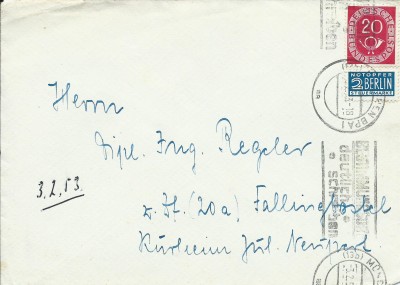 DEUTSCHE
20
BUNDESPOST
NOTOPFER
2 BERLIN
STEUERMARKE
Herrn
Dipl. Ing. Regeler
3.2.53.
z. Zt. (20a) Fallingbostel
Kurheim Jul. Neupert